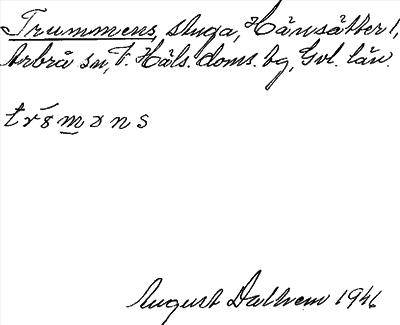 Trummens, stuga, Hänsätter 1,
Arbrå sn, V. Häls. doms. bg, Gvl. län.
August Dalhem 1946